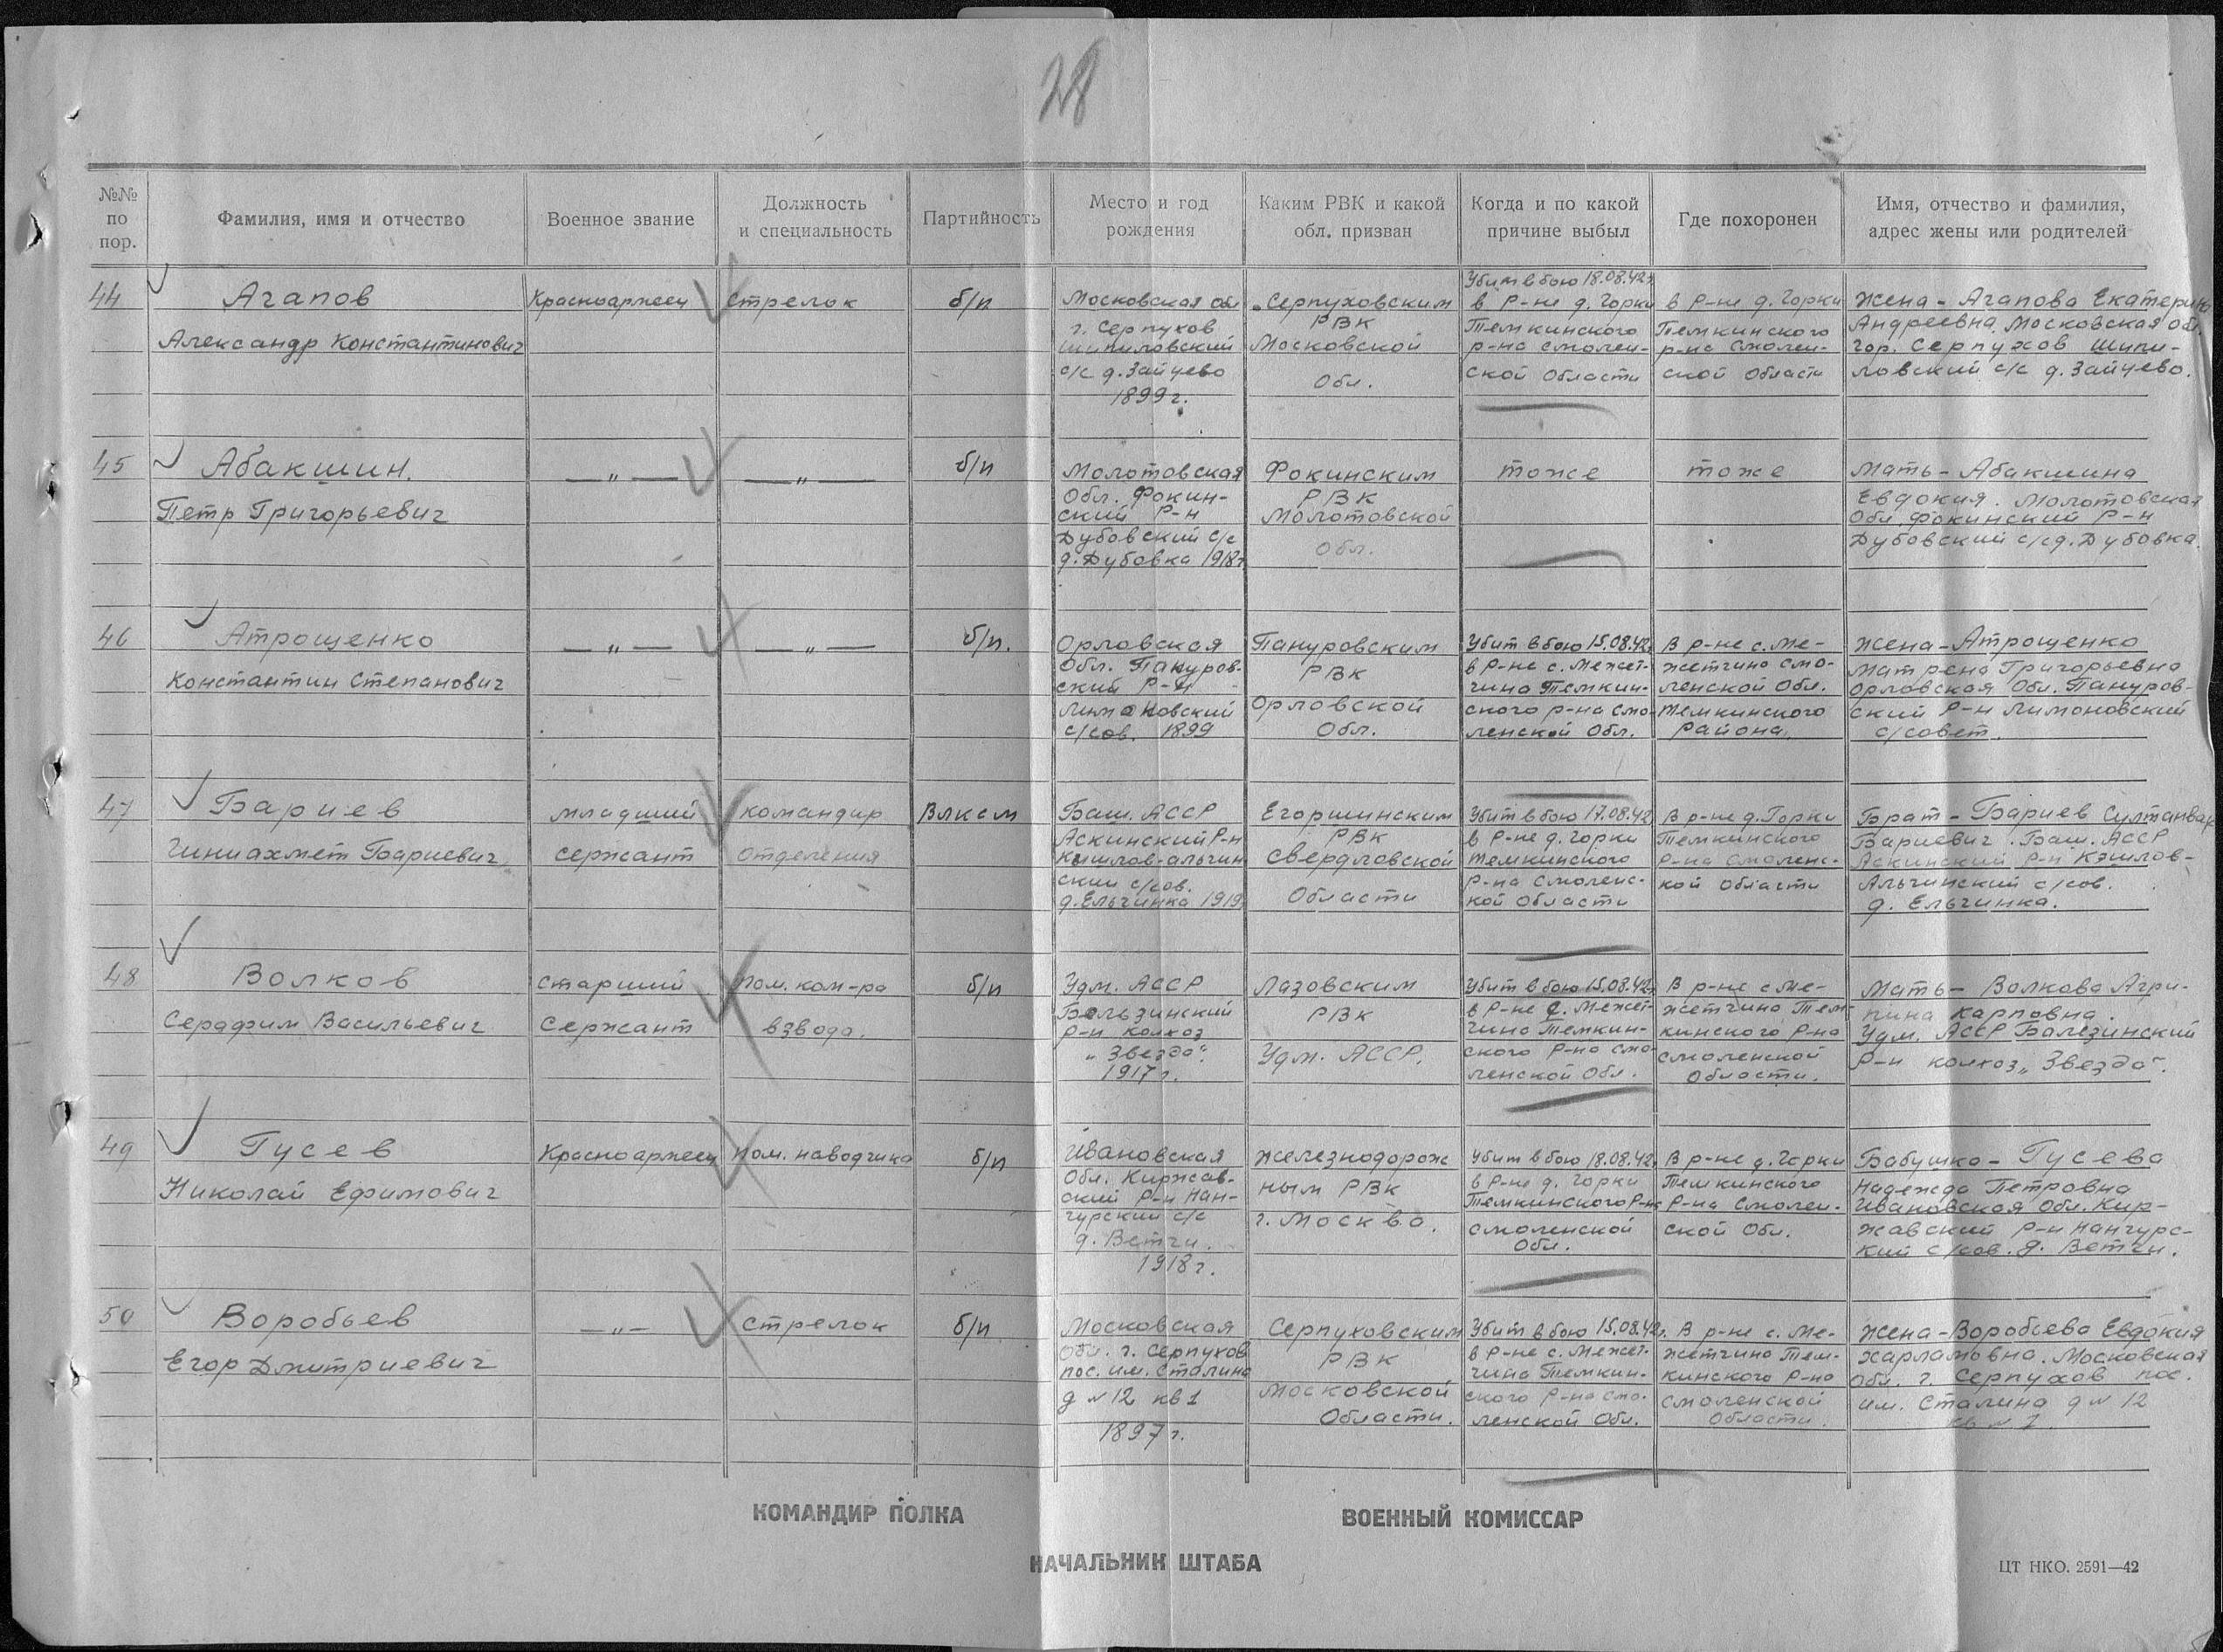 28
№№ по пор.
Фамилия, имя и отчество
Военное звание
Должность и специальность
Партийность
Место и год рождения
Каким РВК и какой обл. призван
Когда и по какой причине выбыл
Где похоронен
Имя, отчество и фамилия, адрес жены или родителей
44
Агапов
Александр Константинович
Красноармеец
стрелок
б/п
Московская обл
г. Серпухов
Шипиловский
с/с д. Зайцево
1899 г.
Серпуховским
РВК
Московской
Обл.
Убит в бою 18.08.42г.
в р-не д. Горки
Темкинского
р-на Смолен-
ской области
в р-не д. Горки
Темкинского
р-на Смолен-
ской области
Жена - Агапова Екатерина
Андреевна. Московская обл.
гор. Серпухов Шипи-
ловский с/с д. Зайцево.
45
Абакшин.
Петр Григорьевич
— „ —
— „ —
б/п
Молотовская
Обл. Фокин-
ский Р-н
Дубовский с/с
д. Дубовка 1918г.
Фокинским
РВК
Молотовской
Обл.
тоже
тоже
Мать - Абакшина
Евдокия. Молотовская
Обл. Фокинский Р-н
Дубовский с/с д. Дубовка.
46
Атрощенко
Константин Степанович
— „ —
— „ —
б/п.
Орловская
Обл. Пануров-
ский Р-н
Лимоновский
с/сов. 1899
Пануровским
РВК
Орловской
Обл.
Убит в бою 15.08.42г.
в р-не с. Межет-
чина Темкин-
ского р-на Смо-
ленской Обл.
В р-не с. Ме-
жетчино Смо-
ленской Обл.
Темкинского
района.
Жена - Атрощенко
Матрена Григорьевна
Орловская Обл. Пануров-
ский Р-н Лимоновский
с/совет.
47
Бариев
Гиниахмет Бариевич.
младший
сержант
командир
отделения
Влксм
Баш. АССР
Аскинский Р-н
Кшлов-альгин
ский с/сов.
д. Ельгинка 1919
Егоршинским
РВК
Свердловской
Области
Убит в бою 17.08.42
в р-не д. Горки
Темкинского
р-на Смоленс-
кой области
В р-не д. Горки
Темкинского
р-на Смоленс-
кой области
Брат - Бариев
Бариевич. Баш. АССР
Аскинский р-н Кэшлов-
Альгинский с/сов.
д. Ельгинка.
48
Волков
Серафим Васильевич
Старший
Сержант
Пом. ком-ра
взвода.
б/п
Удм. АССР
Бользинский
р-н колхоз
„Звезда".
1917 г.
Лазовским
РВК
Удм. АССР.
Убит в бою 15.08.42г.
в р-не с. Межет-
чина Темкин-
ского р-на Смо-
ленской Обл.
В р-не с Ме-
жетчино Тем
кинского р-на
Смоленской
Области.
Мать - Волкова Агри-
пина Карповна.
Удм. АССР Балезинский
р-н колхоз „Звезда".
49
Гусев
Николай Ефимович
Красноармеец
Пом. наводчика
б/п
Ивановская
Обл. Киржав-
ский р-н Нан-
гурский с/с
д. Ветчи.
1918 г.
Железнодорож
ным РВК
г. Москва.
Убит в бою 18.08.42г.
в р-не д. Горки
Темкинского р-на
Смоленской
Обл.
В р-не д. Горки
Темкинского
р-на Смолен-
ской Обл.
Бабушка - Гусева
Надежда Петровна
Ивановская Обл. Кир-
жавский р-н Нангурс-
кий с/сов. д. Ветчи.
50
Воробьев
Егор Дмитриевич
— „ —
стрелок
б/п
Московская
Обл. г. Серпухов
пос. им. Сталина
д № 12 кв 1
1897 г.
Серпуховским
РВК
Московской
Области.
Убит в бою 15.08.42г.
в р-не с. Межет-
чина Темкин-
ского р-на Смо-
ленской Обл.
В р-не с. Ме-
жетчино Тем-
кинского р-на
Смоленской
Области.
Жена - Воробьева Евдокия
Харламовна. Московская
Обл. г. Серпухов пос.
им. Сталина д № 12
кв № 1
КОМАНДИР ПОЛКА
ВОЕННЫЙ КОМИССАР
НАЧАЛЬНИК ШТАБА
ЦТ НКО. 2591—42